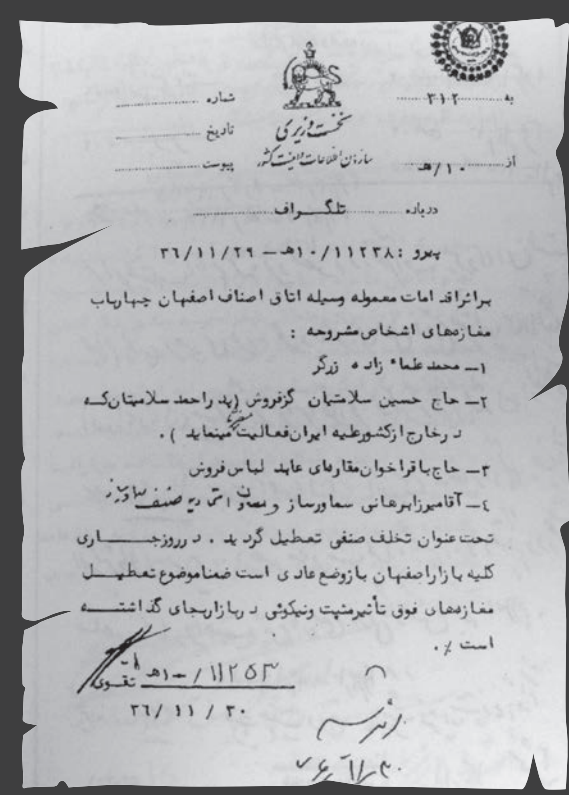 به ۳۱۲
شماره
نخست وزیری
تاریخ
سازمان اطلاعات و امنیت کشور
پیوست
از ۱۰/هـ
درباره تلگراف
پیرو : ۱۰/۱۱۲۳۸هـ - ۳۶/۱۱/۲۹
براثر اقدامات معموله وسیله اتاق اصناف اصفهان چهارباب
مغازه‌های اشخاص مشروحه :
۱- محمد علماء زاده زرگر
۲- حاج حسین سلامتیان گزفروش (پدر احمد سلامتیان که
در خارج از کشور علیه ایران فعالیت مینماید ) .
۳- حاج باقر اخوان مقاره‌ای عابد لباس فروش
٤- آقا میرزا برهانی سماورساز و
تحت عنوان تخلف صنفی تعطیل گردید . در روز جاری
کلیه بازار اصفهان باز و وضع عادی است ضمنا موضوع تعطیل
مغازه‌های فوق تأثیر مثبت و نیکوئی در بازار بجای گذاشته
است ./
۱۱۲۵۳/۱۰-هـ
تقوی
۳۶/۱۱/۳۰